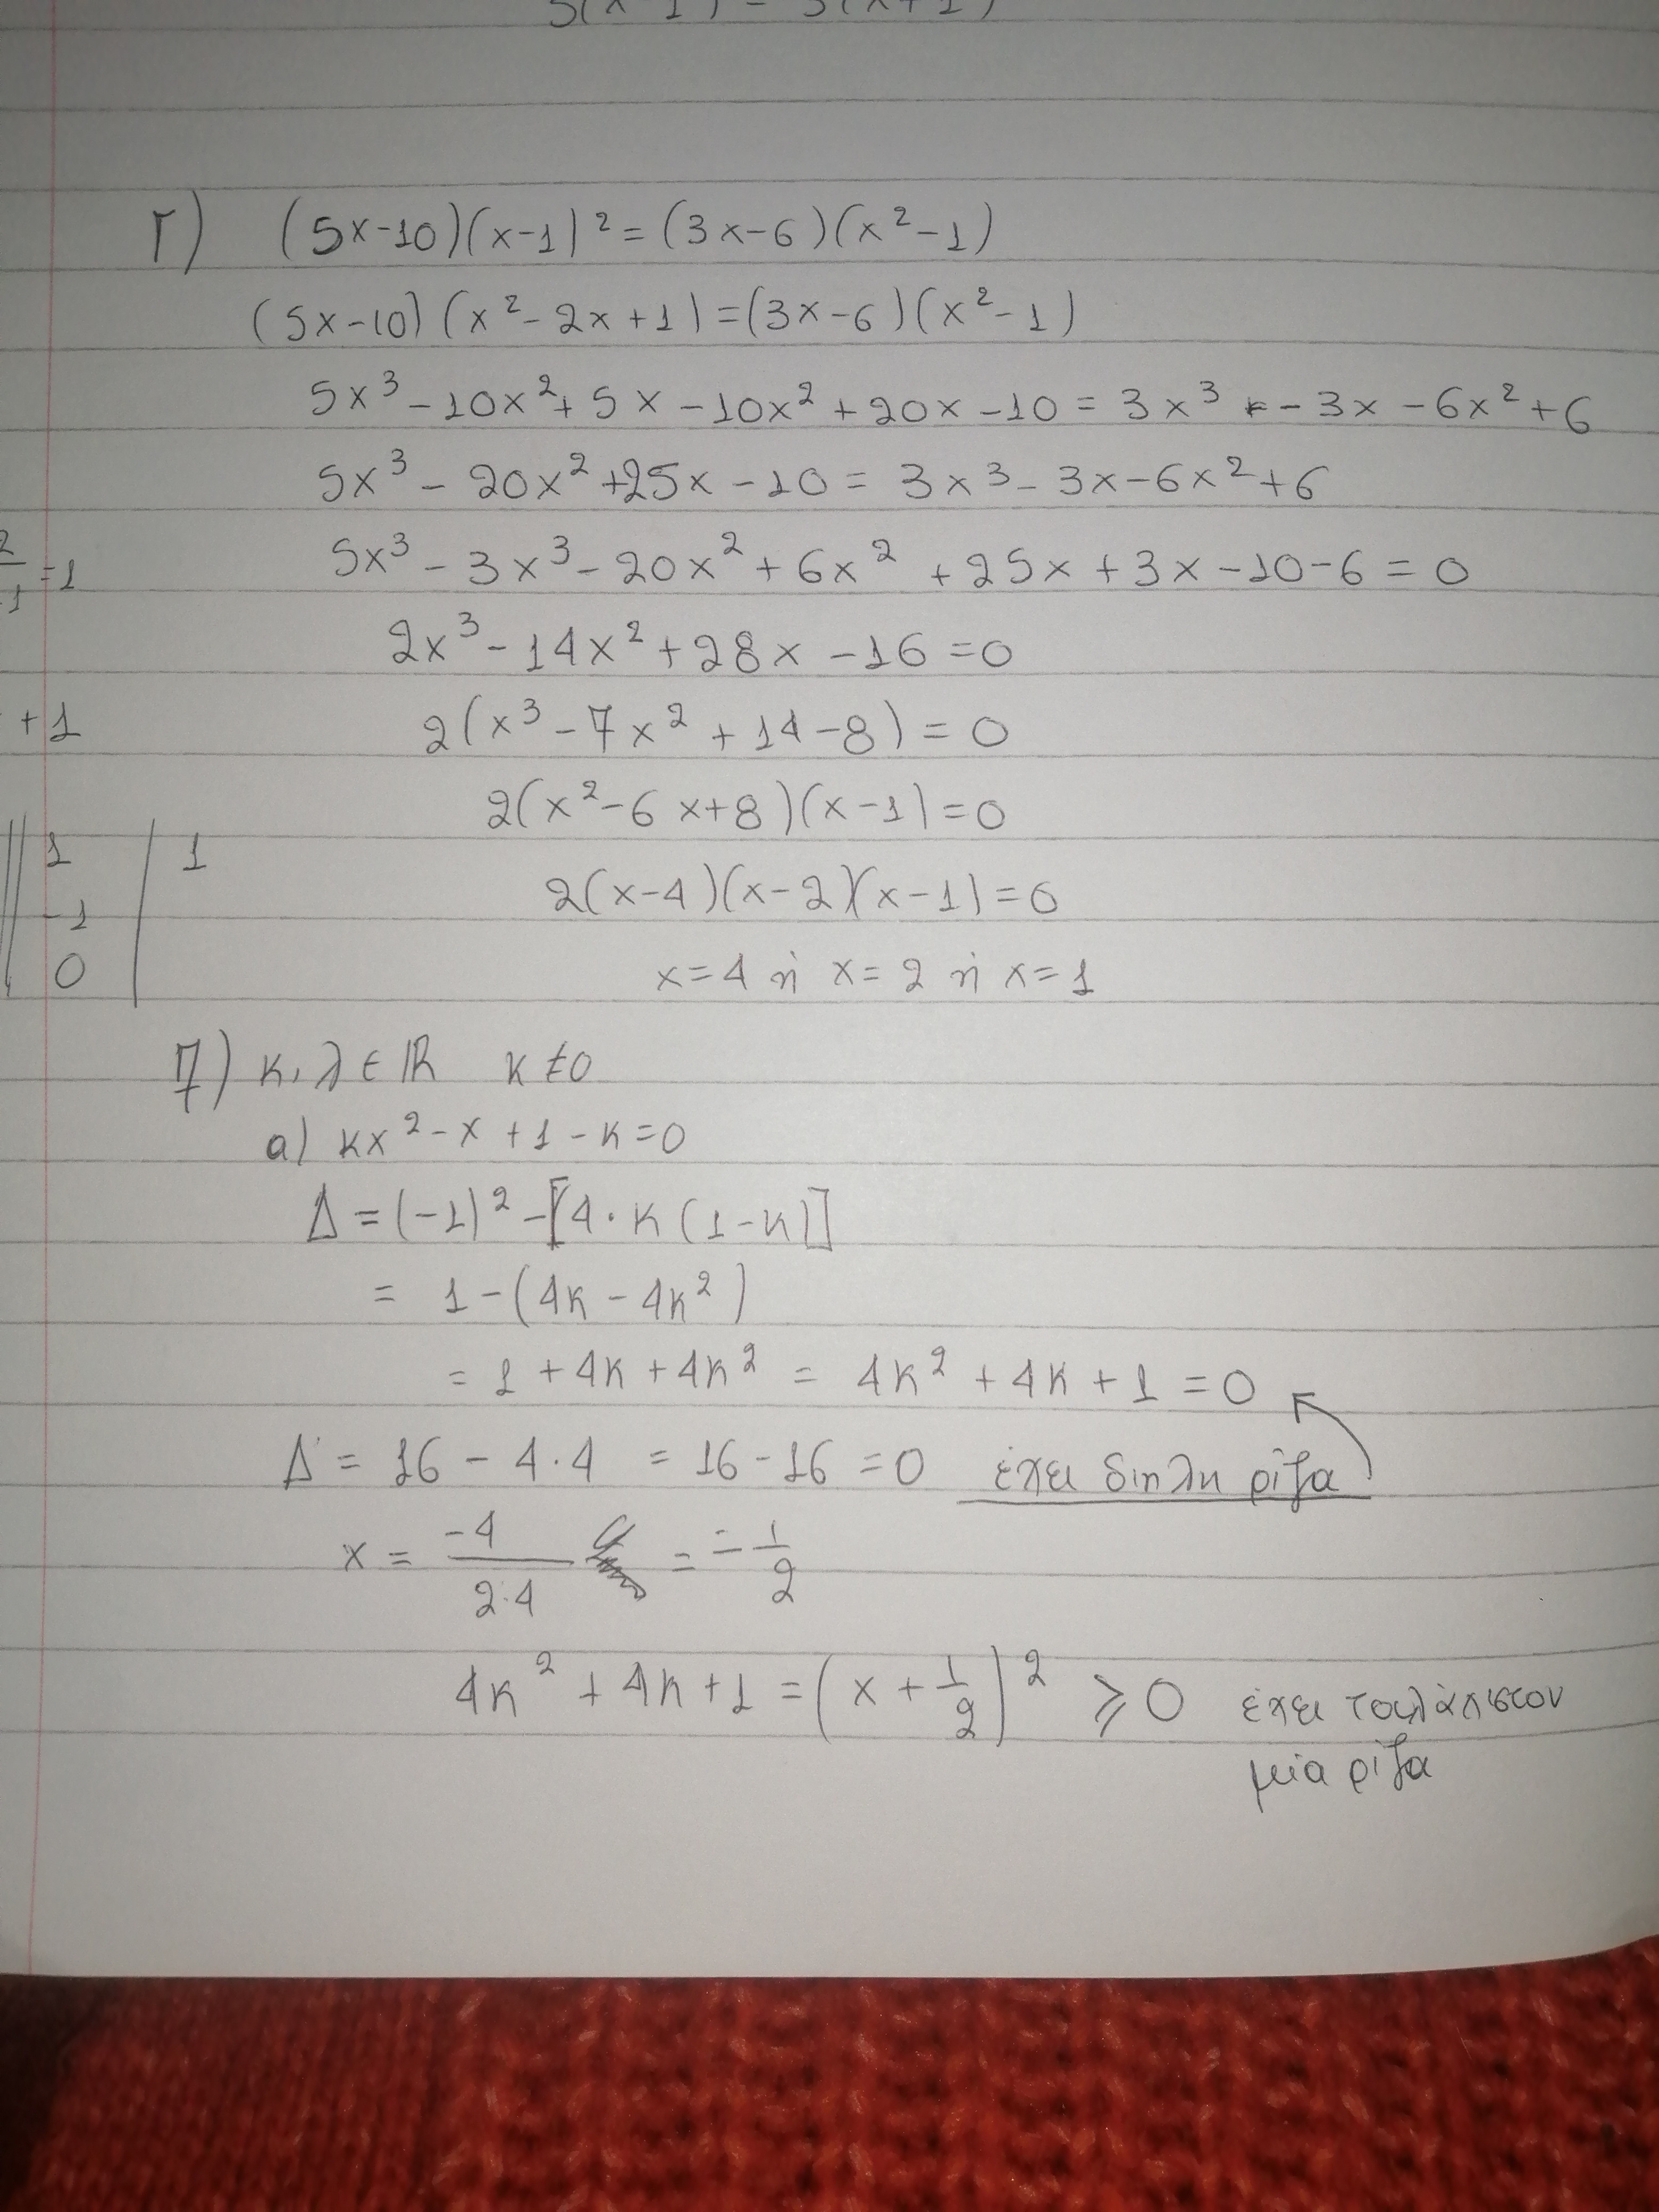 Γ) (5x-10)(x-1)² = (3x-6)(x²-1)
(5x-10)(x²-2x+1)=(3x-6)(x²-1)
5x³-10x²+5x-10x²+20x-10=3x³-3x-6x²+6
5x³-20x²+25x-10=3x³-3x-6x²+6
2/-1=1
5x³-3x³-20x²+6x²+25x+3x-10-6=0
2x³-14x²+28x-16=0
+1
2(x³-7x²+14-8)=0
2(x²-6x+8)(x-1)=0
1 | 1
-1
0
2(x-4)(x-2)(x-1)=0
x=4 ή x=2 ή x=1
7) κ,λ∈ℝ κ≠0
a) κx²-x+1-κ=0
Δ=(-1)²-[4·κ(1-κ)]
= 1-(4κ-4κ²)
= 1+4κ+4κ² = 4κ²+4κ+1=0
Δ = 16-4·4 = 16-16=0 έχει διπλη ρίζα
x = -4/2·4 = -1/2
4κ²+4κ+1=(x+1/2)² ≥0 έχει τουλάχιστον
μία ρίζα